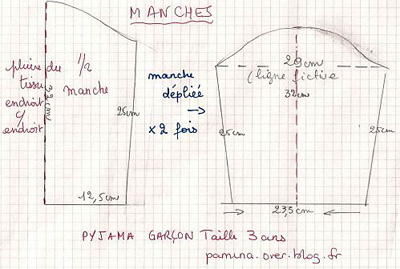 MANCHES
pliure du
tissu
endroit
c/
endroit
1/2
manche
32 cm
25cm
12,5cm
manche
dépliéé
→
x 2 fois
29cm
(ligne fictive
32cm
25cm
25cm
23,5cm
PYJAMA GARÇON Taille 3 ans
pamina.over.blog.fr